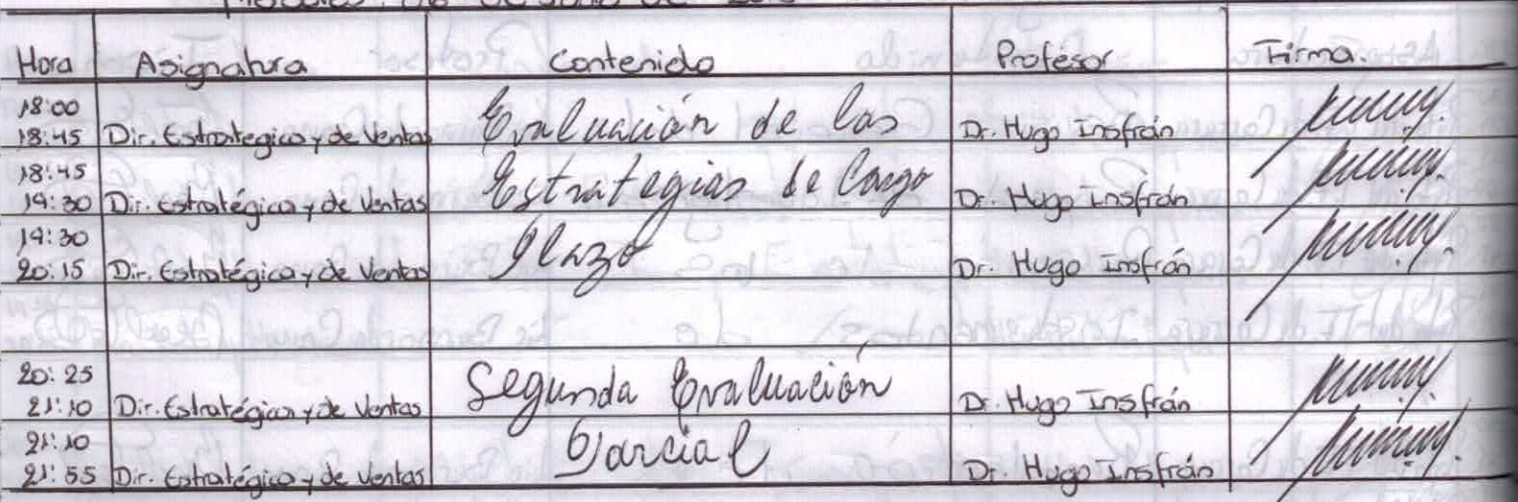 Hora Asignatura Contenido Profesor Firma.
18:00
18:45 Dir. Estrategico y de Ventas Evaluación de las Dr. Hugo Insfrán
18:45
19:30 Dir. Estratégico y de Ventas Estrategias de Largo Dr. Hugo Insfrán
19:30
20:15 Dir. Estratégico y de Ventas Plazo Dr. Hugo Insfrán
20:25
21:10 Dir. Estratégico y de Ventas Segunda Evaluación Dr. Hugo Insfrán
21:10
21:55 Dir. Estratégico y de Ventas Parcial Dr. Hugo Insfrán